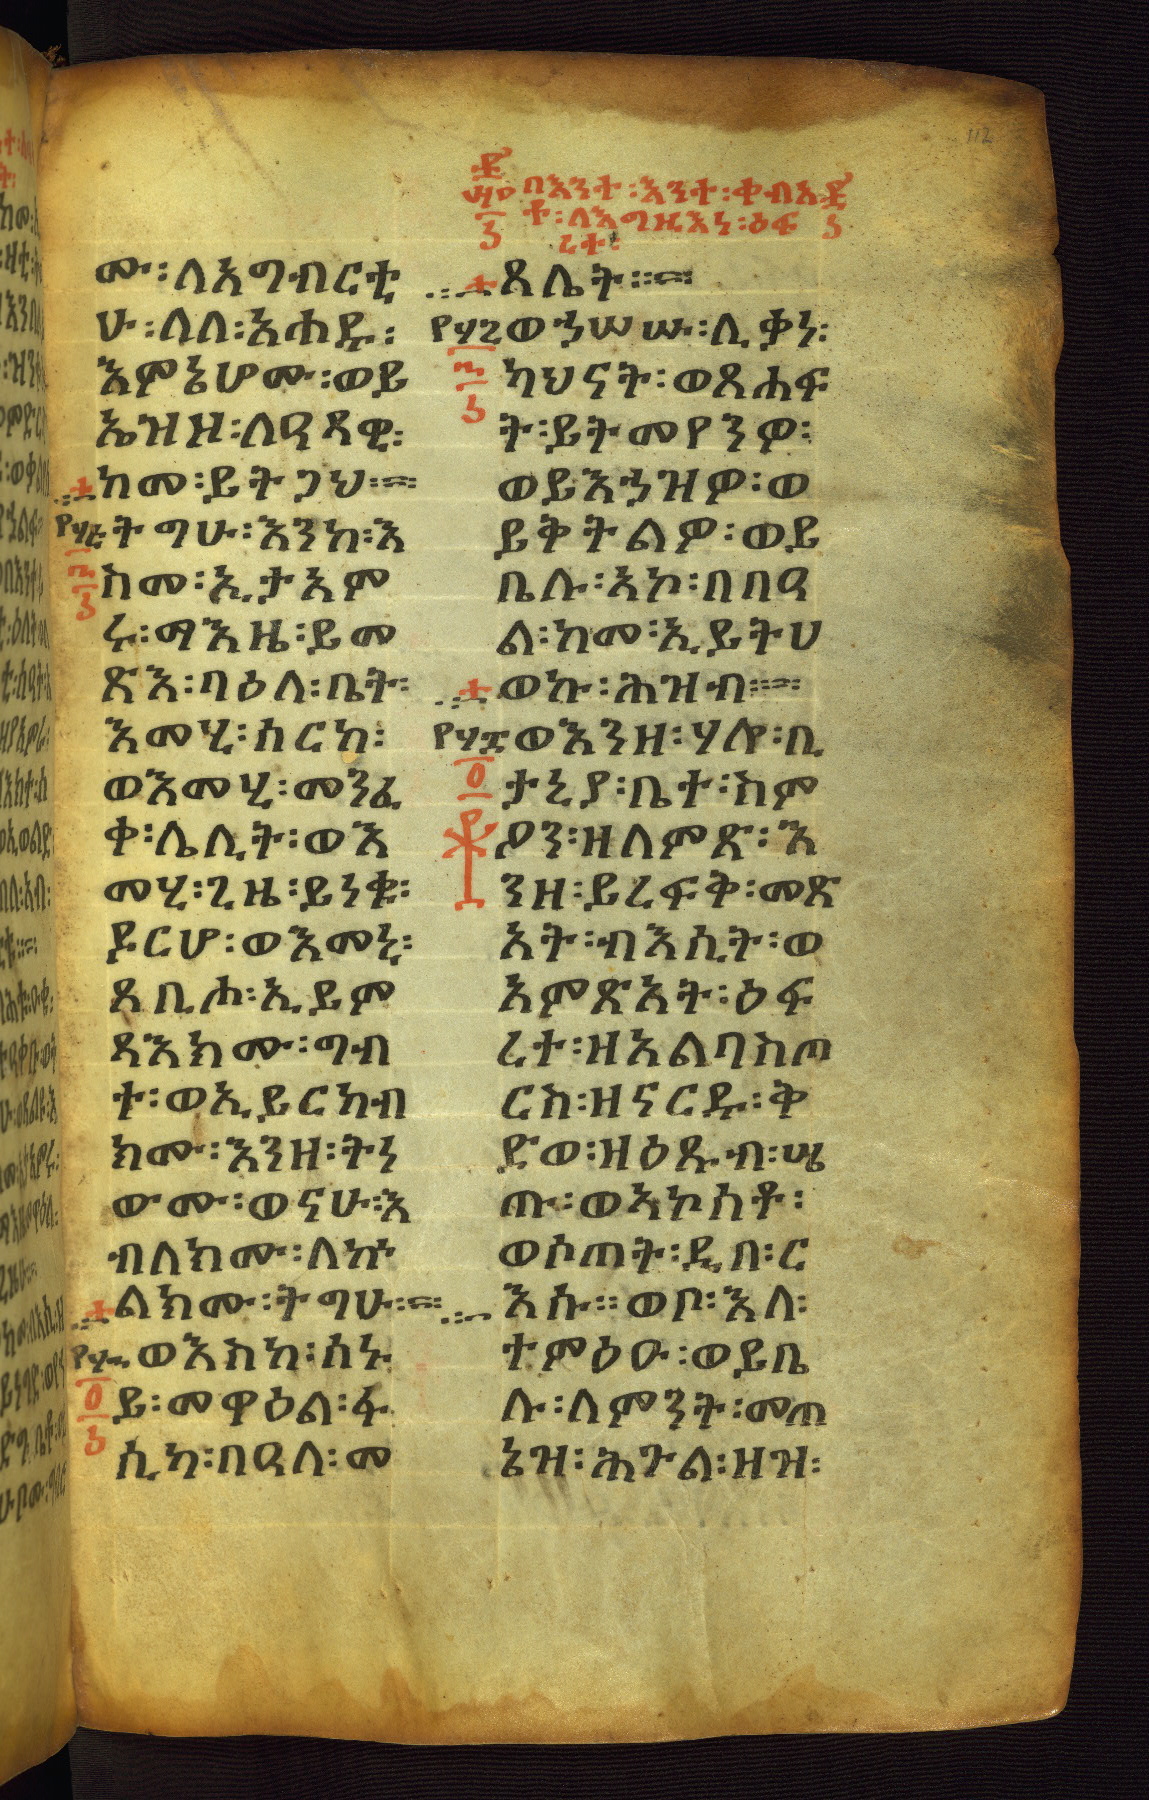 በእንተ፡እንተ፡ቀብአ
ቶ፡ለእግዚእነ፡ዕፍ
ረተ፡
ሙ፡ለአግብርቲ
ሁ፡ለለ፡አሐዱ፡
እምኔሆሙ፡ወይ
ኤዝዞ፡ለዐጻዊ፡
ከመ፡ይትጋህ፡፡
ትግሁ፡እንከ፡እ
ስመ፡ኢታአም
ሩ፡ማእዜ፡ይመ
ጽእ፡ባዕለ፡ቤት፡
እመሂ፡ሰርከ፡
ወእመሂ፡መንፈ
ቀ፡ሌሊት፡ወእ
መሂ፡ጊዜ፡ይነቁ፡
ዶርሆ፡ወእመኒ፡
ጸቢሖ፡ኢይም
ጻእክሙ፡ግብ
ተ፡ወኢይርከብ
ክሙ፡እንዘ፡ትነ
ውሙ፡ወናሁ፡እ
ብለክሙ፡ለኵ
ልክሙ፡ትግሁ፡፡
ወእስከ፡ሰኑ
ይ፡መዋዕል፡ፋ
ሲካ፡በዓለ፡መ
ጸሌት፡፡
ወኀሠሡ፡ሊቃነ፡
ካህናት፡ወጸሐፍ
ት፡ይትመየንዎ፡
ወይእኀዝዎ፡ወ
ይቅትልዎ፡ወይ
ቤሉ፡አኮ፡በበዓ
ል፡ከመ፡ኢይትሀ
ወኩ፡ሕዝብ፡፡
ወእንዘ፡ሃሎ፡ቢ
ታኒያ፡ቤተ፡ስም
ዖን፡ዘለምጽ፡እ
ንዘ፡ይረፍቅ፡መጽ
አት፡ብእሲት፡ወ
አምጽአት፡ዕፍ
ረተ፡ዘአልባስጦ
ርስ፡ዘናርዱ፡ቅ
ድወ፡ዘዕጹብ፡ሤ
ጡ፡ወጻኮሰቶ፡
ወሶጠት፡ዲበ፡ር
እሱ፡፡ወቦ፡እለ፡
ተምዕዑ፡ወይቤ
ሉ፡ለምንት፡መጠ
ኔዝ፡ሕጕል፡ዘዝ፡